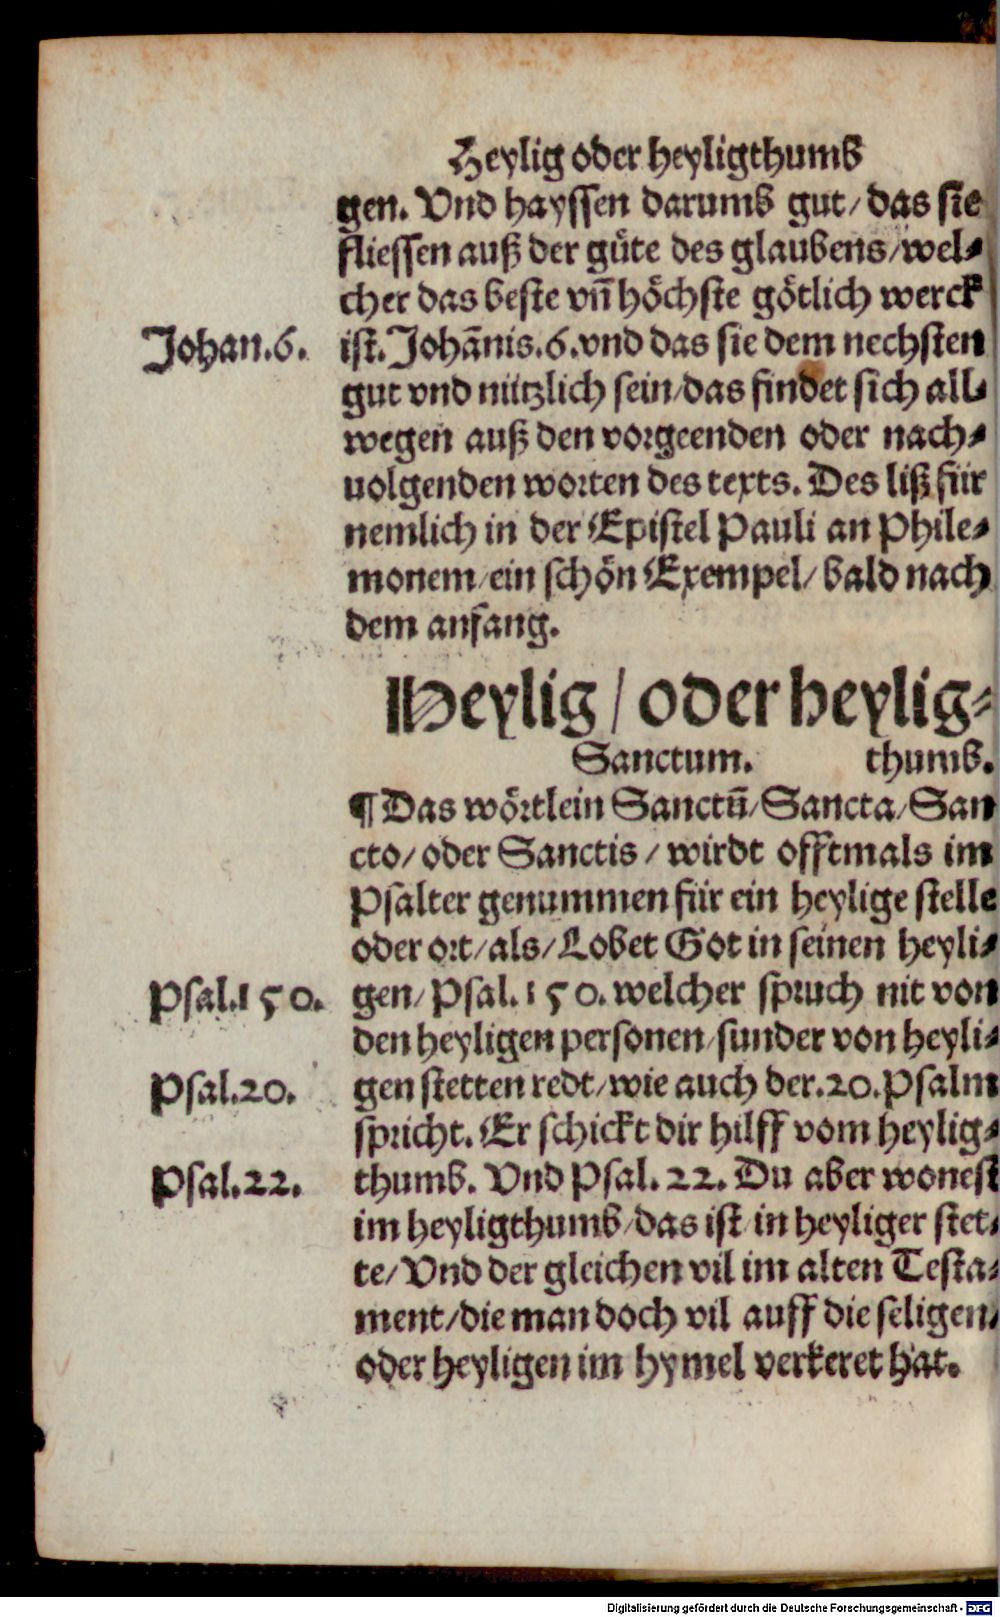 Heylig oder heyligthumb
gen. Vnd hayssen darumb gut/ das sie
fliessen auß der güte des glaubens/ wel⸗
cher das beste vn̄ höchste götlich werck
Johan.6.
ist. Johānis.6. vnd das sie dem nechsten
gut vnd nützlich sein/ das findet sich all⸗
wegen auß den vorgeenden oder nach⸗
uolgenden worten des texts. Des liß für
nemlich in der Epistel Pauli an Phile⸗
monem/ ein schön Exempel/ bald nach
dem anfang.
Heylig/ oder heylig⸗
Sanctum. thumb.
¶ Das wörtlein Sanctū/ Sancta/ San
cto/ oder Sanctis/ wirdt offtmals im
Psalter genummen für ein heylige stelle
oder ort/ als/ Lobet Got in seinen heyli⸗
Psal.150.
gen/ Psal.150. welcher spruch nit von
den heyligen personen/ sunder von heyli⸗
Psal.20.
gen stetten redt/ wie auch der.20. Psalm
spricht. Er schickt dir hilff vom heylig⸗
Psal.22.
thumb. Vnd Psal.22. Du aber wonest
im heyligthumb/ das ist in heyliger stet⸗
te/ Vnd der gleichen vil im alten Testa⸗
ment/ die man doch vil auff die seligen/
oder heyligen im hymel verkeret hat.
Digitalisierung gefördert durch die Deutsche Forschungsgemeinschaft - DFG